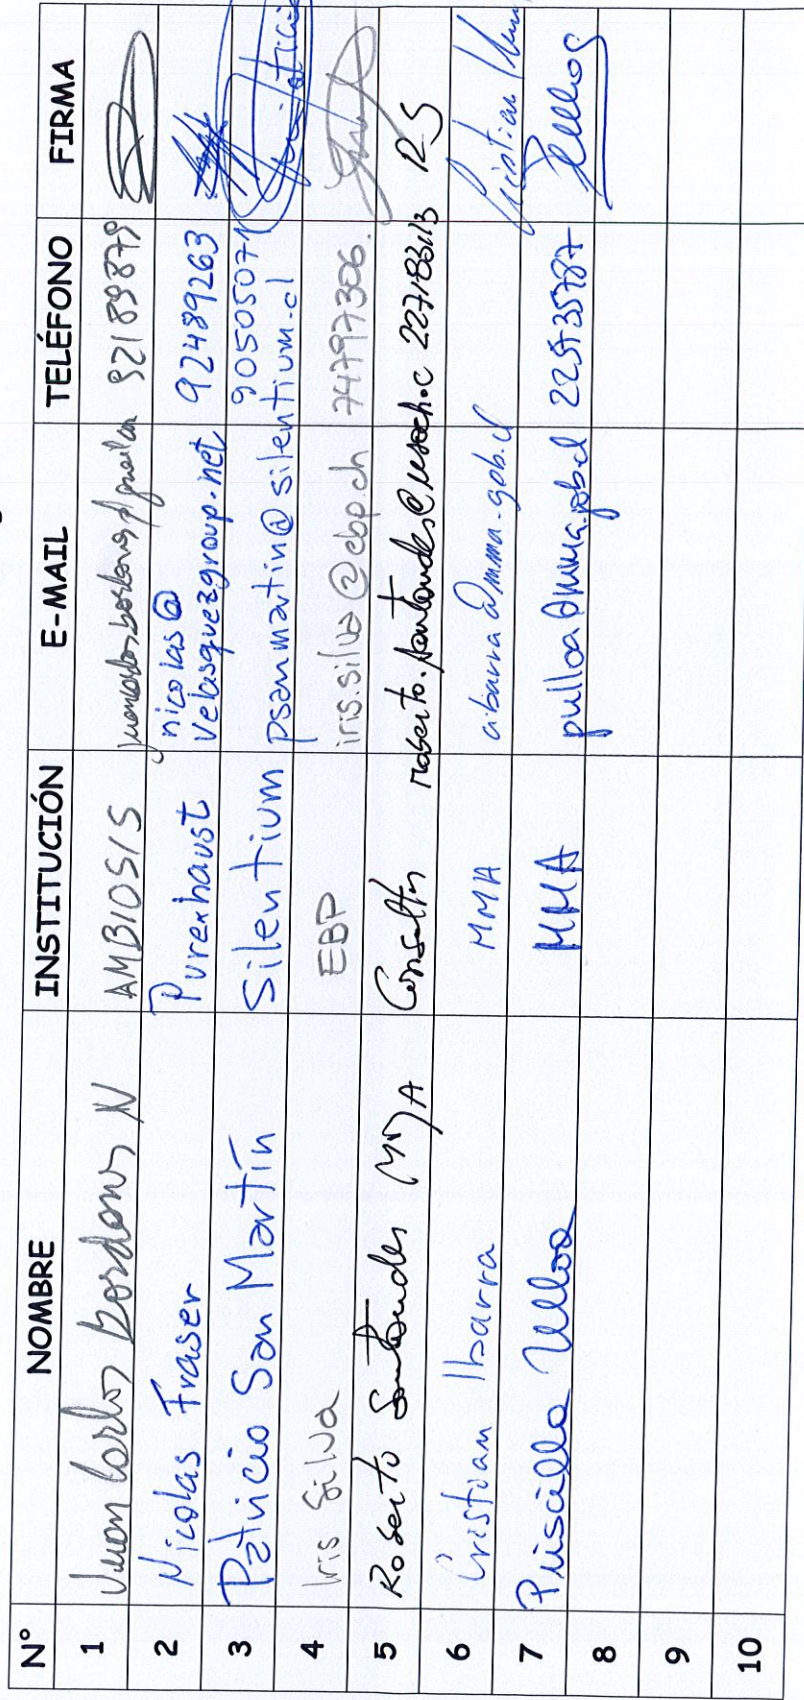 N° NOMBRE INSTITUCIÓN E-MAIL TELÉFONO FIRMA
1 Juan Carlos Bordones N AMBIOSIS 92189879
2 Nicolas Fraser Purexhaust nicolas@
velasquezgroup.net 92489263
3 Patricio San Martín Silentium psanmartin@silentium.cl 90505071
4 Iris Silva EBP iris.silva@ebp.ch 74797306.
5 Roberto Santander MMA Consultor roberto.santander@usach.c RS
6 Cristian Ibarra MMA cibarra@mma.gob.cl
7 Priscilla Ulloa MMA pulloa@mma.gob.cl 225735787
8
9
10